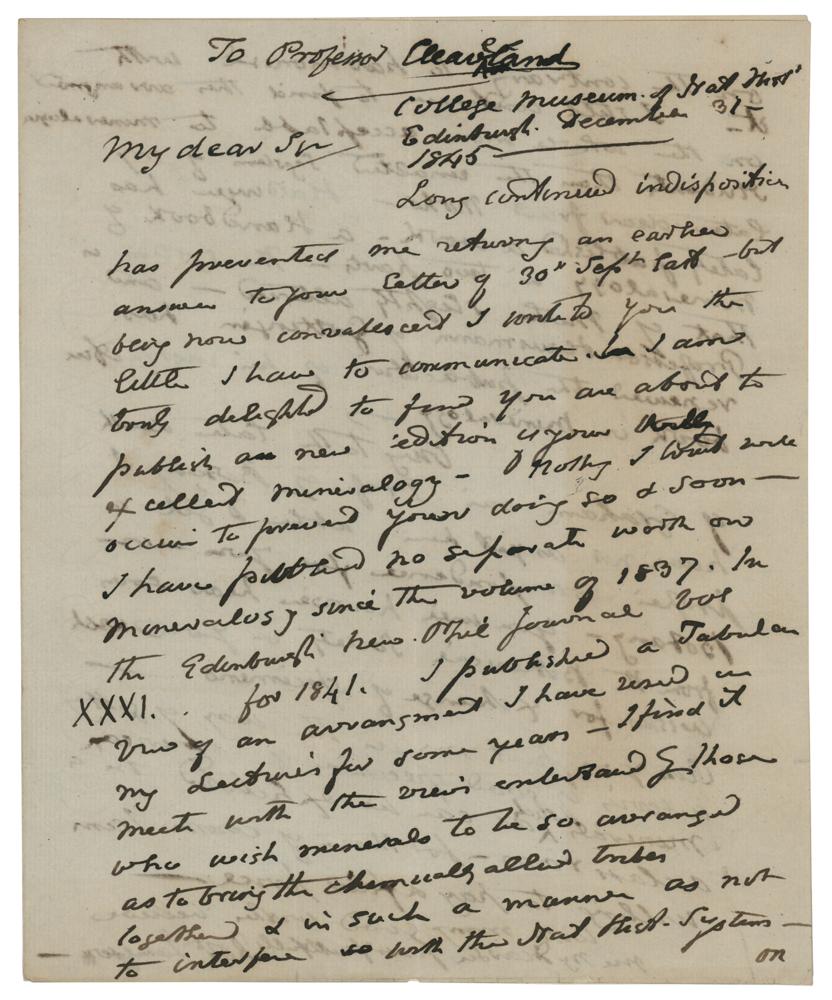 To Professor Cleaveland
College Museum of Nat Hist
Edinburgh. December 31 –
1845
My dear Sir
Long continued indisposition
has prevented me returning an earlier
answer to your letter of 30th Septr last – but
being now convalescent I write to you the
little I have to communicate. I am
truly delighted to find you are about to
publish a new edition of your
excellent mineralogy – nothing I trust will
occur to prevent your doing so & soon —
I have published no separate work on
Mineralogy since the volume of 1837. In
the Edinburgh New. Phil Journal vol
XXXI. for 1841. I published a Tabular
View of an arrangment I have used in
my Lectures for some years – I find it
meets with the views entertained by those
who wish minerals to be so arranged
as to bring the chemically allied tribes
together & in such a manner as not
to interfere so with the Nat Hist. System –
on